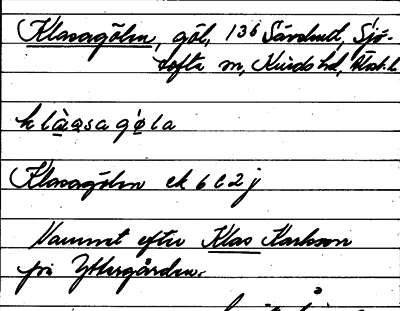 Klasagölen, göl, 136 Sävshult, Sjö-
tofta sn, Kinds hd, Älvsb. l.
klàasagö́la
Klasagölen ek 6 C 2 j
Namnet efter Klas Karlsson
på Yttergården.